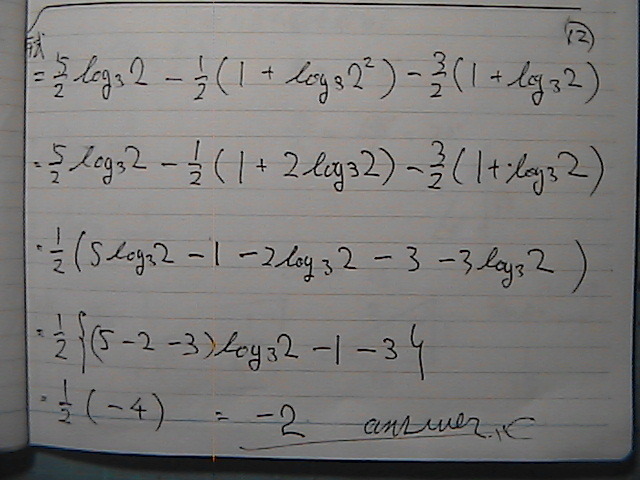 ⑫
式
= 5/2 log₃2 − 1/2 (1 + log₃2²) − 3/2 (1 + log₃2)
= 5/2 log₃2 − 1/2 (1 + 2log₃2) − 3/2 (1 + log₃2)
= 1/2 (5log₃2 − 1 − 2log₃2 − 3 − 3log₃2)
= 1/2 {(5 − 2 − 3)log₃2 − 1 − 3}
= 1/2 (−4) = −2 answer